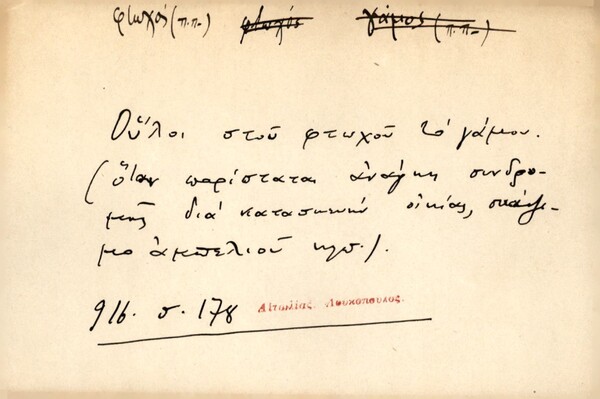 φτωχός (π.π.) φτωχός γάμος (π.π.)
Οὗλοι στοῦ φτωχοῦ τὸ γάμου.
(ὅταν παρίσταται ἀνάγκη συνδρο-
μῆς διὰ κατασκευὴν οἰκίας, σκάψι-
μο ἀμπελιοῦ κλπ.).
916. σ. 178 Αἰτωλίας. Λουκόπουλος.